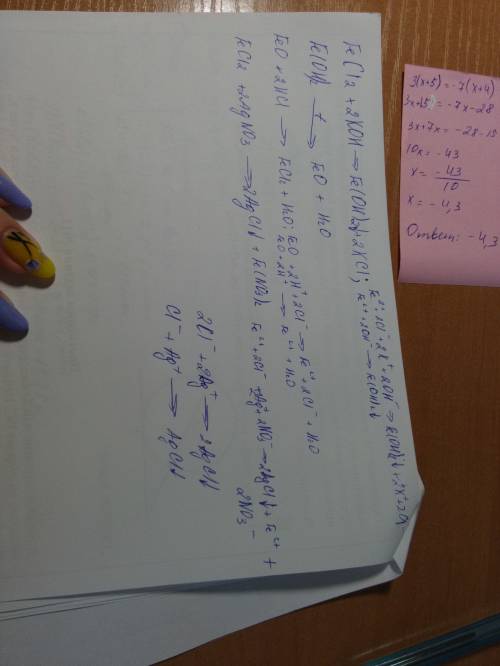 FeCl2 + 2KOH → Fe(OH)2↓ + 2KCl; Fe²⁺ + 2Cl⁻ + 2K⁺ + 2OH⁻ → Fe(OH)2↓ + 2K⁺ + 2Cl⁻
Fe²⁺ + 2OH⁻ → Fe(OH)2↓
Fe(OH)2 → FeO + H2O
FeO + 2HCl → FeCl2 + H2O; FeO + 2H⁺ + 2Cl⁻ → Fe²⁺ + 2Cl⁻ + H2O
FeO + 2H⁺ → Fe²⁺ + H2O
FeCl2 + 2AgNO3 → 2AgCl↓ + Fe(NO3)2 Fe²⁺ + 2Cl⁻ + 2Ag⁺ + 2NO3⁻ → 2AgCl↓ + Fe²⁺ +
2NO3⁻
2Cl⁻ + 2Ag⁺ → 2AgCl↓
Cl⁻ + Ag⁺ → AgCl↓
3(x+5) = -7(x+4)
3x+15 = -7x-28
3x+7x = -28-15
10x = -43
x = -43/10
x = -4,3
Ответ: -4,3